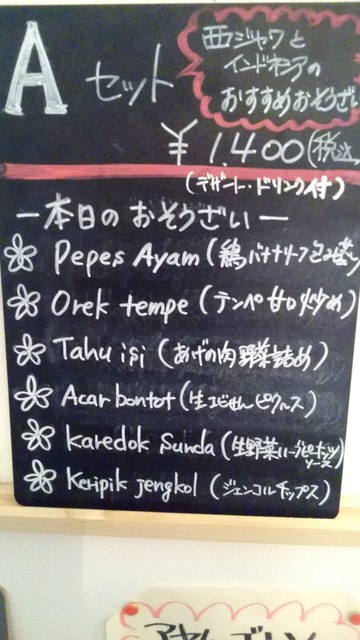 A セット
西ジャワと
インドネシアの
おすすめおそうざい
¥1,400(税込
(デザート・ドリンク付)
ー本日のおそうざいー
Pepes Ayam (鶏バナナリーフ包み蒸し
Orek tempe (テンペ甘口炒め)
Tahu isi (あげの肉野菜詰め)
Acar bontot (生エビせんピクルス)
Karedok Sunda (生野菜ハーブピーナッツ
ソース)
Keripik jengkol (ジェンコルチップス)